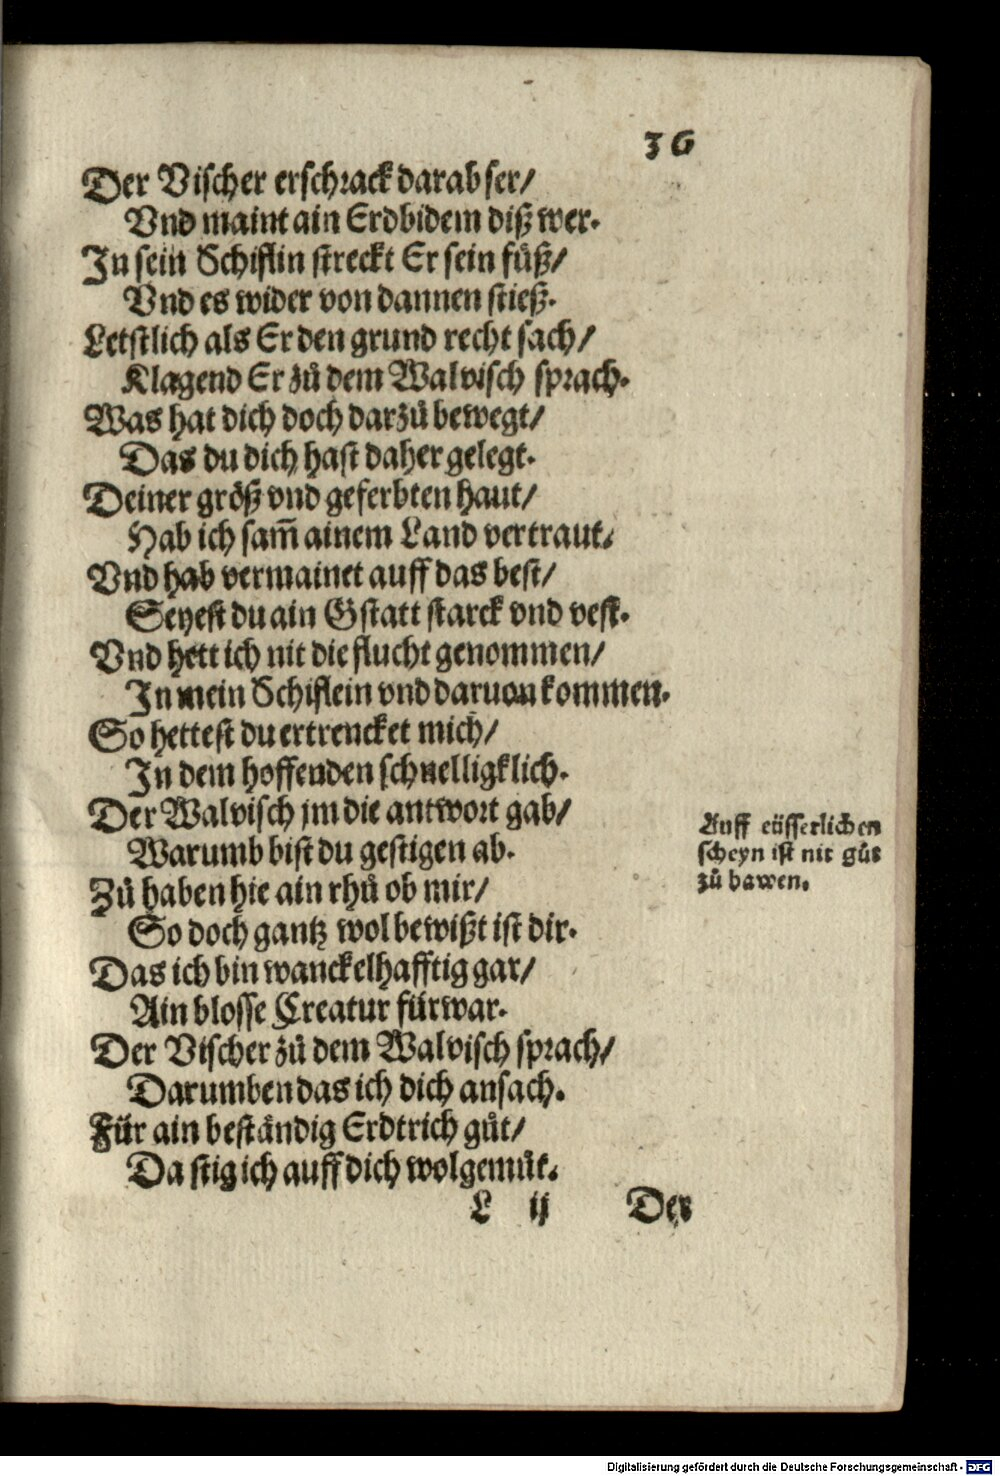 36
Der Vischer erschrack darab ser/
Vnd maint ain Erdbidem diß wer.
In sein Schiflin streckt Er sein fuͤß/
Vnd es wider von dannen stieß.
Letstlich als Er den grund recht sach/
Klagend Er zuͦ dem Walvisch sprach.
Was hat dich doch darzuͦ bewegt/
Das du dich hast daher gelegt.
Deiner groͤß vnd geferbten haut/
Hab ich sam̃ ainem Land vertraut.
Vnd hab vermainet auff das best/
Seyest du ain Gstatt starck vnd vest.
Vnd hett ich nit die flucht genommen/
In mein Schiflein vnd daruon kommen.
So hettest du ertrencket mich/
In dem hoffenden schnelligklich.
Der Walvisch jm die antwort gab/
Warumb bist du gestigen ab.
Zuͦ haben hie ain rhuͦ ob mir/
So doch gantz wol bewißt ist dir.
Das ich bin wanckelhafftig gar/
Ain blosse Creatur fürwar.
Der Vischer zuͦ dem Walvisch sprach/
Darumben das ich dich ansach.
Für ain bestaͤndig Erdtrich guͦt/
Da stig ich auff dich wolgemuͦt.
Auff eüsserlichen
scheyn ist nit guͦt
zuͦ bawen.
L ij Der
Digitalisierung gefördert durch die Deutsche Forschungsgemeinschaft - DFG